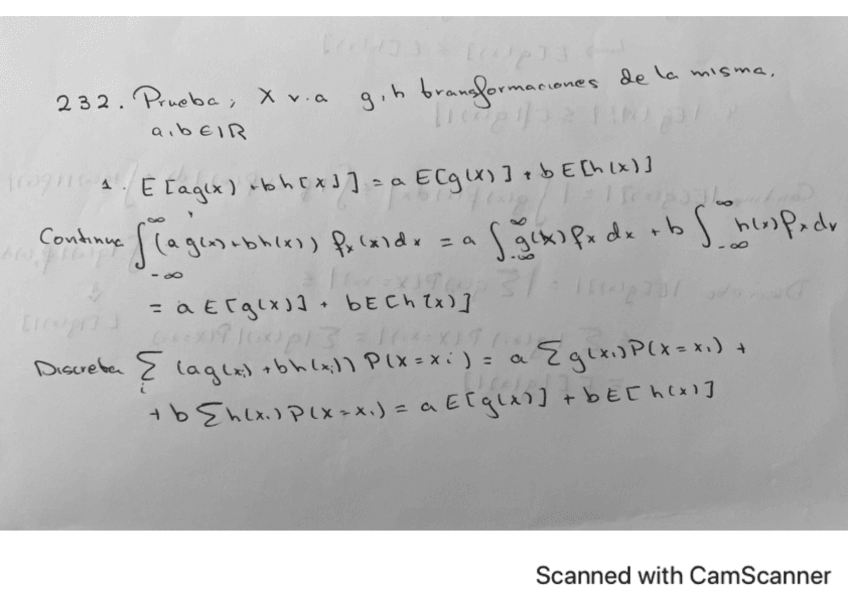 232. Prueba, X v.a g, h transformaciones de la misma.
a, b ∈ IR
1. E [ag(x) + bh[x]] = a E[g(x)] + b E[h(x)]
Continua ∫_{-∞}^{∞} (a g(x) + bh(x)) f_x(x) dx = a ∫_{-∞}^{∞} g(x) f_x dx + b ∫_{-∞}^{∞} h(x) f_x dx
= a E[g(x)] + b E[h(x)]
Discreta Σ_i (ag(x_i) + bh(x_i)) P(X = x_i) = a Σ g(x_i) P(X = x_i) +
+ b Σ h(x_i) P(X = x_i) = a E[g(x)] + b E[h(x)]
Scanned with CamScanner